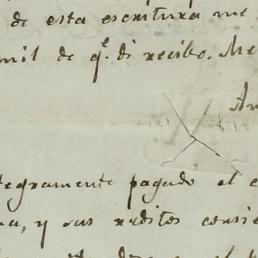 de esta escritura me
mil de qe. di recibo. Me
An
tegramente pagado el c
na, y sus reditos consi